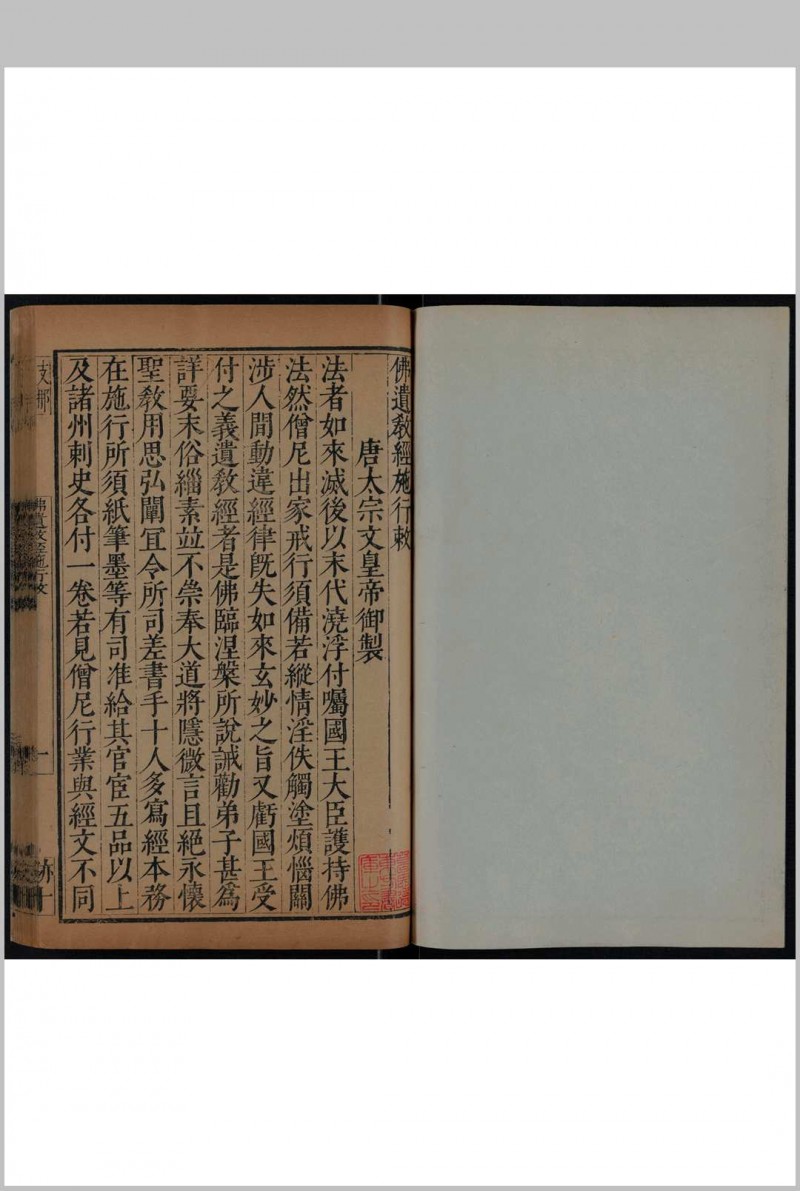 佛遺敎經施行敕
唐太宗文皇帝御製
法者如來滅後以末代澆浮付囑國王大臣護持佛
法然僧尼出家戒行須備若縱情淫佚觸塗煩惱關
涉人閒動違經律旣失如來玄妙之旨又虧國王受
付之義遺敎經者是佛臨涅槃所說誡勸弟子甚爲
詳要末俗緇素竝不崇奉大道將隱微言且絕永懷
聖敎用思弘闡宜令所司差書手十人多寫經本務
在施行所須紙筆墨等有司准給其官宦五品以上
及諸州刺史各付一卷若見僧尼行業與經文不同
支那
一
跡一